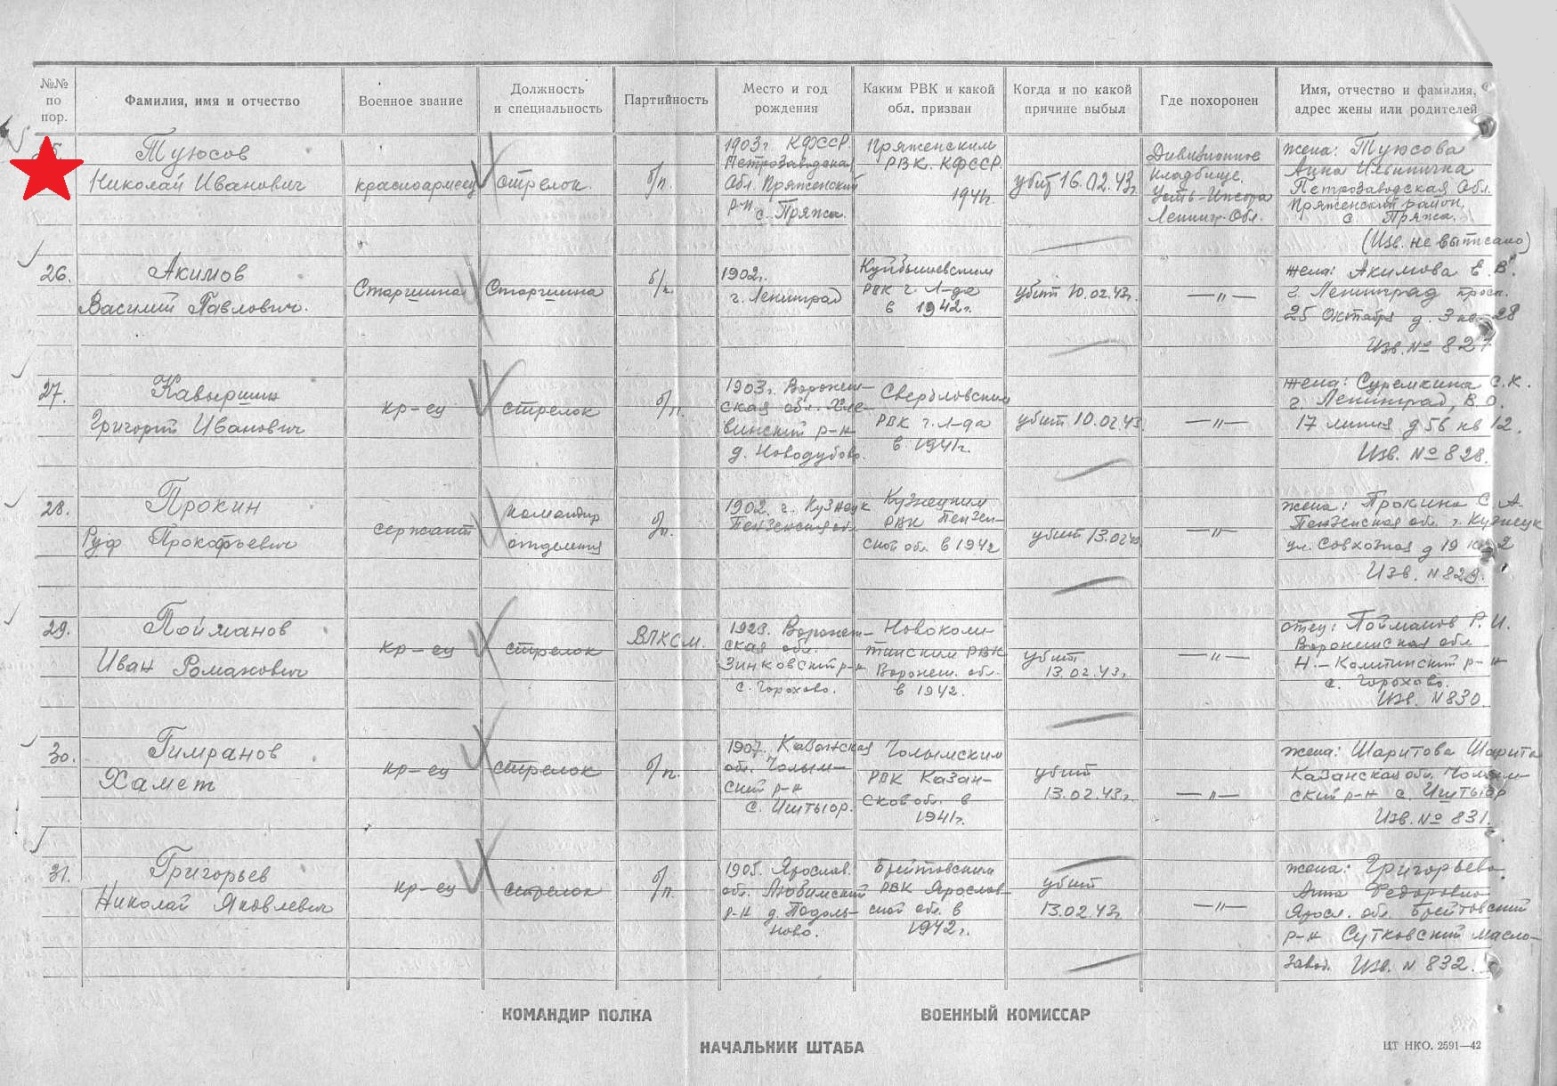 №№ по пор.
Фамилия, имя и отчество
Военное звание
Должность и специальность
Партийность
Место и год рождения
Каким РВК и какой обл. призван
Когда и по какой причине выбыл
Где похоронен
Имя, отчество и фамилия, адрес жены или родителей
Туюсов
Николай Иванович
красноармеец
стрелок
б/п.
1903г. КФССР.
Петрозаводская
Обл. Пряженский
р-н
с. Пряжа.
Пряженским
РВК. КФССР
1941г.
убит 16.02.43г.
Дивизионное
кладбище.
Усть-Ижора
Ленингр. Обл.
жена: Туюсова
Анна Ильинична
Петрозаводская Обл.
Пряженский район,
с. Пряжа.
(Изв. не выписано)
26.
Акимов
Василий Павлович.
Старшина
Старшина
б/п
1902г.
г. Ленинград
Куйбышевским
РВК г. Л-да
в 1942г.
убит 10.02.43г.
—"—
жена: Акимова Е.В.
г. Ленинград просп.
25 Октября д. 3 кв. 28
Изв. № 827
27.
Кавыршин
Григорий Иванович
кр-ец
стрелок
б/п.
1903г. Воронеж-
ская обл. Хле-
винский р-н
д. Новодубово.
Свердловским
РВК г. Л-да
в 1941г.
убит 10.02.43
—"—
жена: Суремкина С.К.
г. Ленинград, В.О.
17 линия д 56 кв 12.
Изв. № 828.
28.
Прокин
Руф Прокофьевич
сержант
командир
отделения
б/п.
1902. г. Кузнецк
Пензенская обл.
Кузнецким
РВК Пензен-
ской обл. в 1942
убит 13.02.43
—"—
жена: Прокина С.А.
Пензенская обл. г. Кузнецк
ул. Совхозная д 19 кв 2
Изв. № 829.
29.
Пойманов
Иван Романович
кр-ец
стрелок
ВЛКСМ.
1923. Воронеж-
ская обл.
Зинковский р-н
с. Горохово.
Новокали-
тинским РВК
Воронеж. обл.
в 1942.
убит
13.02.43г.
—"—
отец: Пойманов Р.И.
Воронежская обл
Н.-Калитинский р-н
с. Горохово.
Изв. № 830.
30.
Гимранов
Хамет
кр-ец
стрелок
б/п.
1907. Казанская
обл. Чолым-
ский р-н
с. Иштыор.
Чолымским
РВК Казан-
ской обл. в
1941г.
убит
13.02.43г.
—"—
жена: Шаритова Шарита
Казанская обл. Чолым-
ский р-н с. Иштыор
Изв. № 831.
31.
Григорьев
Николай Яковлевич
кр-ец
стрелок
б/п.
1905. Ярослав.
обл. Любимский
р-н д. Подоль-
ново.
Брейтовским
РВК Ярослав-
ской обл. в
1942г.
убит
13.02.43г.
—"—
жена: Григорьева
Анна Федоровна
Яросл. обл. Брейтовский
р-н Сутковский масло-
завод. Изв. № 832.
КОМАНДИР ПОЛКА
ВОЕННЫЙ КОМИССАР
НАЧАЛЬНИК ШТАБА
ЦТ НКО. 2591—42